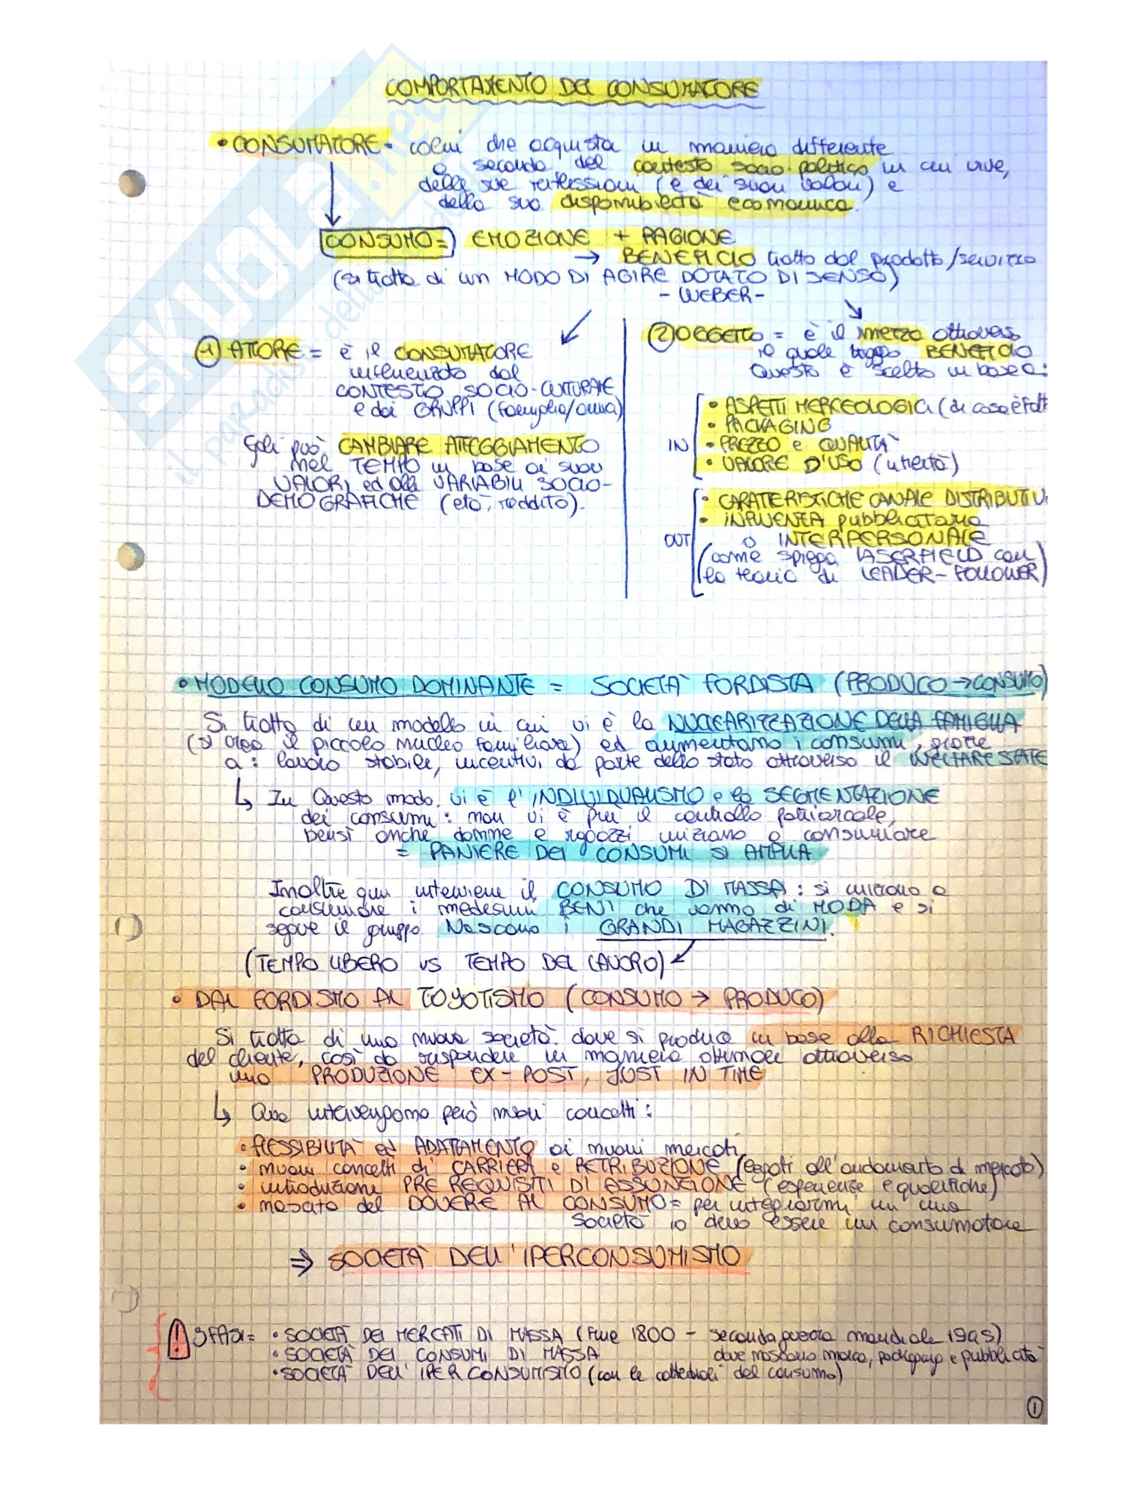 COMPORTAMENTO DEL CONSUMATORE
• CONSUMATORE = colui che acquista in maniera differente
a seconda del contesto socio-politico in cui vive,
delle sue riflessioni (e dei suoi valori) e
della sua disponibilità economica.
CONSUMO = EMOZIONE + RAGIONE
→ BENEFICIO tratto dal prodotto/servizio
(si tratta di un MODO DI AGIRE DOTATO DI SENSO)
- WEBER -
① ATTORE = è il CONSUMATORE
influenzato dal
CONTESTO SOCIO-CULTURALE
e dai GRUPPI (famiglia/amici)
Egli può CAMBIARE ATTEGGIAMENTO
nel TEMPO in base ai suoi
VALORI ed alle VARIABILI SOCIO-
DEMOGRAFICHE (età, reddito).
② OGGETTO = è il mezzo attraverso
il quale traggo BENEFICIO
Questo è scelto in base a:
IN
• ASPETTI MERCEOLOGICI (di cosa è fatt
• PACKAGING
• PREZZO e QUALITÀ
• VALORE D'USO (utilità)
OUT
• CARATTERISTICHE CANALE DISTRIBUTIV
• INFLUENZA pubblicitaria
o INTERPERSONALE
(come spiega LASERFIELD con
la teoria di LEADER-FOLLOWER)
• MODELLO CONSUMO DOMINANTE = SOCIETÀ FORDISTA (PRODUCO → CONSUMO)
Si tratta di un modello in cui vi è la NUCLEARIZZAZIONE DELLA FAMIGLIA
(si crea il piccolo nucleo famigliare) ed aumentano i consumi, grazie
a: lavoro stabile, incentivi da parte dello stato attraverso il WELFARE STATE
↳ In Questo modo, vi è l'INDIVIDUALISMO e la SEGMENTAZIONE
dei consumi: non vi è più il controllo patriarcale,
bensì anche donne e ragazzi iniziano a consumare
= PANIERE DEI CONSUMI SI AMPLIA
Inoltre qui interviene il CONSUMO DI MASSA: si iniziano a
consumare i medesimi BENI che vanno di MODA e si
segue il gruppo. Nascono i GRANDI MAGAZZINI.
(TEMPO LIBERO VS TEMPO DEL LAVORO)
• DAL FORDISMO AL TOYOTISMO (CONSUMO → PRODUCO)
Si tratta di una nuova società dove si produce in base alla RICHIESTA
del cliente, così da rispondere in maniera ottimale attraverso
una PRODUZIONE EX-POST, JUST IN TIME
↳ Qua intervengono però nuovi concetti:
• FLESSIBILITÀ ed ADATTAMENTO ai nuovi mercati
• nuovi concetti di CARRIERA e RETRIBUZIONE (legati all'andamento di mercato)
• introduzione PRE REQUISITI DI ASSUNZIONE (esperienze e qualifiche)
• nascita del DOVERE AL CONSUMO = per integrarmi in una
società io devo essere un consumatore
⇒ SOCIETÀ DELL'IPERCONSUMISMO
! 3 FASI = • SOCIETÀ DEI MERCATI DI MASSA (fine 1800 - seconda guerra mondiale 1945)
dove nascono marca, packaging e pubblicità
• SOCIETÀ DEI CONSUMI DI MASSA
• SOCIETÀ DELL'IPERCONSUMISMO (con le cattedrali del consumo)
1